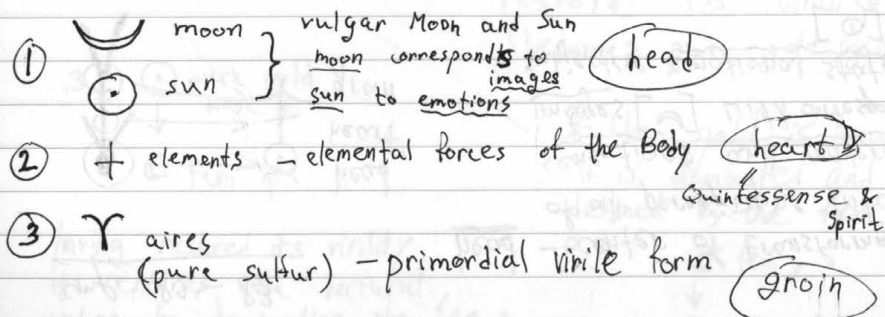 ① moon } vulgar Moon and Sun
moon corresponds to images head
sun sun to emotions
② + elements – elemental forces of the Body heart
Quintessense & Spirit
③ ♈ aires
(pure sulfur) – primordial virile form
groin